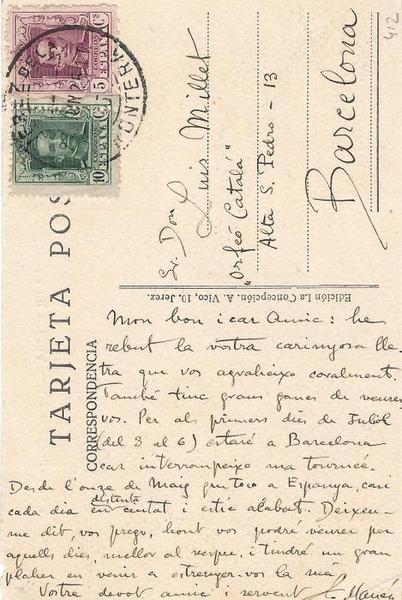 412
5 Cs
CORREOS
ESPAÑA
10 Cs
ESPAÑA
JEREZ DE
FRONTERA
TARJETA POS
CORRESPONDENCIA
Sr. Don
Luis Millet
"Orfeó Catalá"
Alta S. Pedro - 13
Barcelona
Edición La Concepción. A. Vico, 10. Jerez.
Mon bon i car Amic: he
rebut la vostra carinyosa lle-
tra que vos agraheixo coralment.
També tinc grans ganes de veure-
vos. Per als primers dies de Juliol
(del 3 al 6) estaré a Barcelona
car interrompeixo ma tournée.
Desde l'onze de Maig que toco a Espanya, casi
cada dia en distinta ciutat i estic alabat. Deixeu-
me dit, vos prego, hont vos podré veurer per
aquells dies, mellor al vespre, i tindré un gran
plaher en venir a estrenyer-vos la mà.
Vostre devot amic i servent